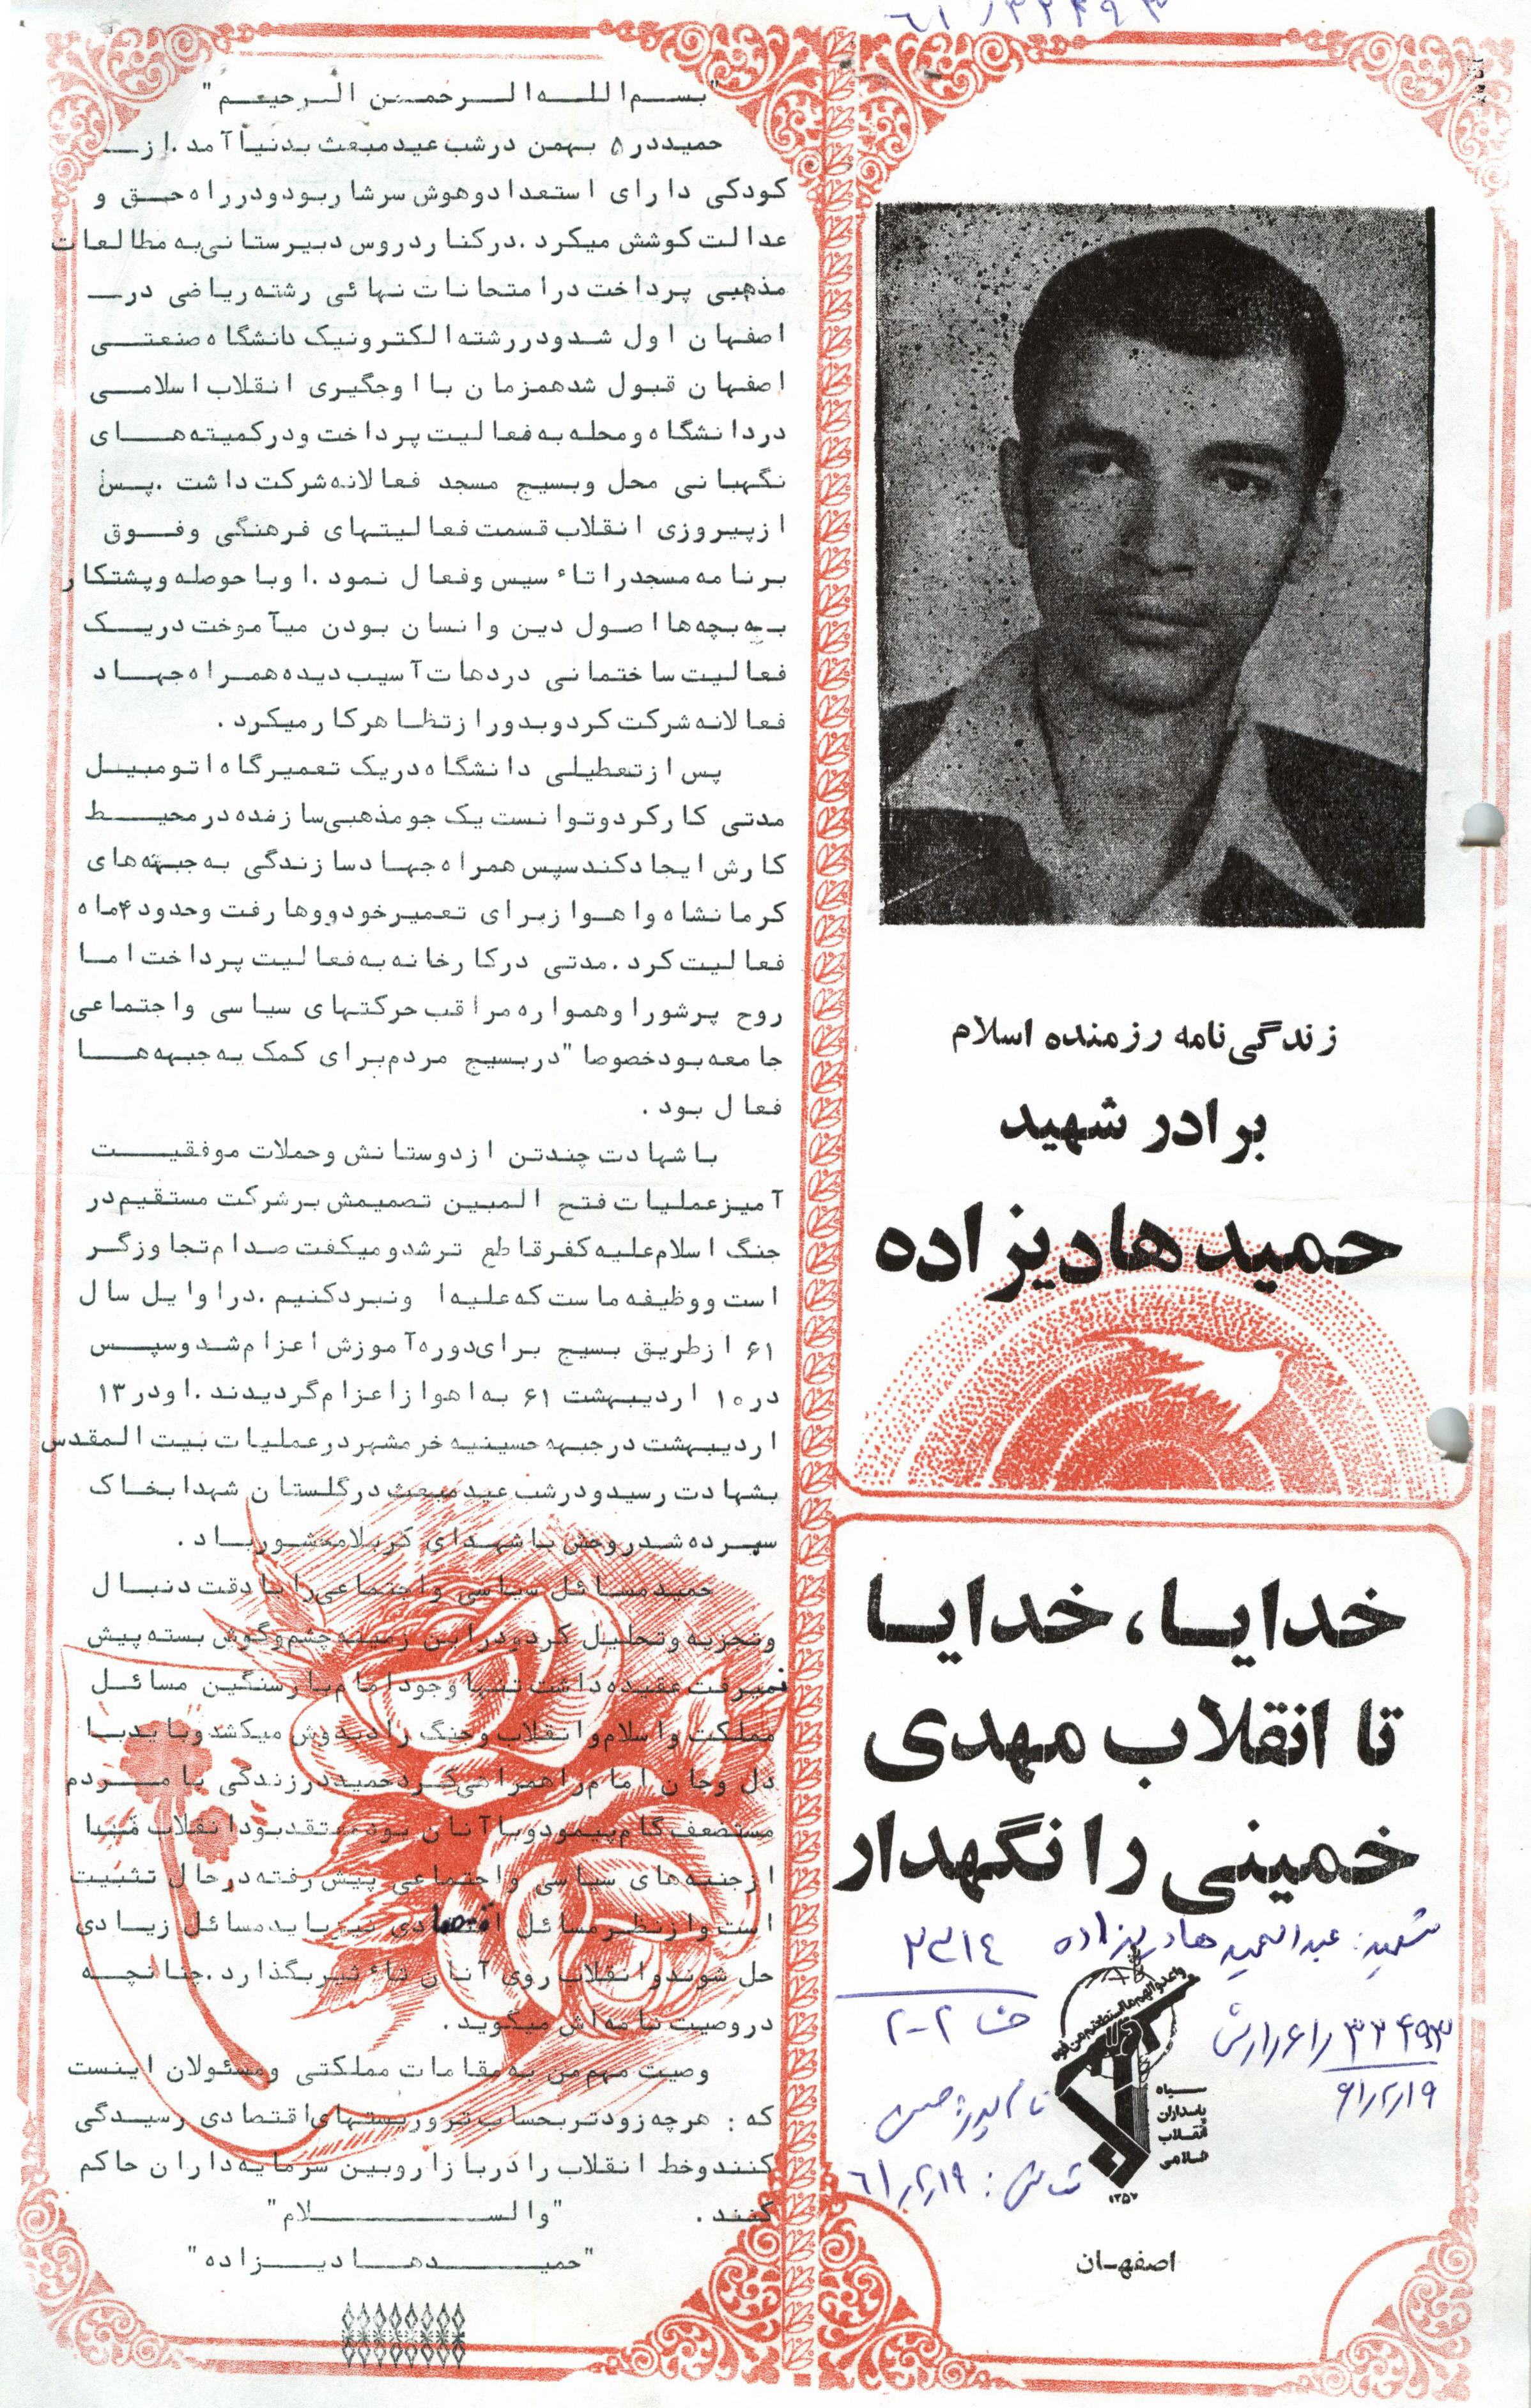 زندگی نامه رزمنده اسلام
برادر شهید
حمید هادیزاده
خدایا، خدایا
تا انقلاب مهدی
خمینی را نگهدار
شهید: عبدالحمید هادیزاده
۳۳۴۹۳
۶۱/۲/۱۹
نام پدر: حسن
۶۱/۲/۱۹
سپاه
پاسداران
انقلاب
اسلامی
۱۳۵۷
اصفهان
"بسم الله الرحمن الرحیم"
حمید در ۵ بهمن در شب عید مبعث بدنیا آمد. از
کودکی دارای استعداد و هوش سرشار بود و در راه حق و
عدالت کوشش میکرد. در کنار دروس دبیرستانی به مطالعات
مذهبی پرداخت در امتحانات نهائی رشته ریاضی در
اصفهان اول شد و در رشته الکترونیک دانشگاه صنعتی
اصفهان قبول شد همزمان با اوجگیری انقلاب اسلامی
در دانشگاه و محله به فعالیت پرداخت و در کمیته های
نگهبانی محل و بسیج مسجد فعالانه شرکت داشت. پس
از پیروزی انقلاب قسمت فعالیتهای فرهنگی و فوق
برنامه مسجد را تاء سیس و فعال نمود. او با حوصله و پشتکار
به بچه ها اصول دین و انسان بودن میآموخت در یک
فعالیت ساختمانی در دهات آسیب دیده همراه جهاد
فعالانه شرکت کرد و بدور از تظاهر کار میکرد.
پس از تعطیلی دانشگاه در یک تعمیرگاه اتومبیل
مدتی کار کرد و توانست یک جو مذهبی سازنده در محیط
کارش ایجاد کند سپس همراه جهاد سازندگی به جبهه های
کرمانشاه و اهواز برای تعمیر خودروها رفت و حدود ۴ ماه
فعالیت کرد. مدتی در کارخانه به فعالیت پرداخت اما
روح پرشور او همواره مراقب حرکتهای سیاسی و اجتماعی
جامعه بود خصوصا" در بسیج مردم برای کمک به جبهه ها
فعال بود.
با شهادت چند تن از دوستانش و حملات موفقیت
آمیز عملیات فتح المبین تصمیمش بر شرکت مستقیم در
جنگ اسلام علیه کفر قاطع تر شد و میگفت صدام تجاوزگر
است و وظیفه ماست که علیه او نبرد کنیم. در اوایل سال
۶۱ از طریق بسیج برای دوره آموزش اعزام شد و سپس
در ۱۰ اردیبهشت ۶۱ به اهواز اعزام گردیدند. او در ۱۳
اردیبهشت در جبهه حسینیه خرمشهر در عملیات بیت المقدس
بشهادت رسید و در شب عید مبعث در گلستان شهدا بخاک
سپرده شد روحش با شهدای کربلا محشور باد.
حمید مسائل سیاسی و اجتماعی را با دقت دنبال
و تجزیه و تحلیل کرد و در این زمینه چشم و گوش بسته پیش
نمیرفت عقیده داشت تنها وجود امام بار سنگین مسائل
مملکت و اسلام و انقلاب و جنگ را بدوش میکشد و باید با
دل و جان امام را همراهی کرد حمید در زندگی با مردم
مستضعف گام پیمود و با آنان بود معتقد بود انقلاب تنها
از جنبه های سیاسی و اجتماعی پیش رفته در حال تثبیت
است و از نظر مسائل اقتصادی نیز باید مسائل زیادی
حل شوند و انقلاب روی آنان تاء ثیر بگذارد. چنانچه
در وصیت نامه اش میگوید.
وصیت مهم من به مقامات مملکتی و مسئولان اینست
که : هرچه زودتر بحساب تروریستهای اقتصادی رسیدگی
کنند و خط انقلاب را در بازار و بین سرمایه داران حاکم
کنند. "والسلام"
"حمید هادیزاده"